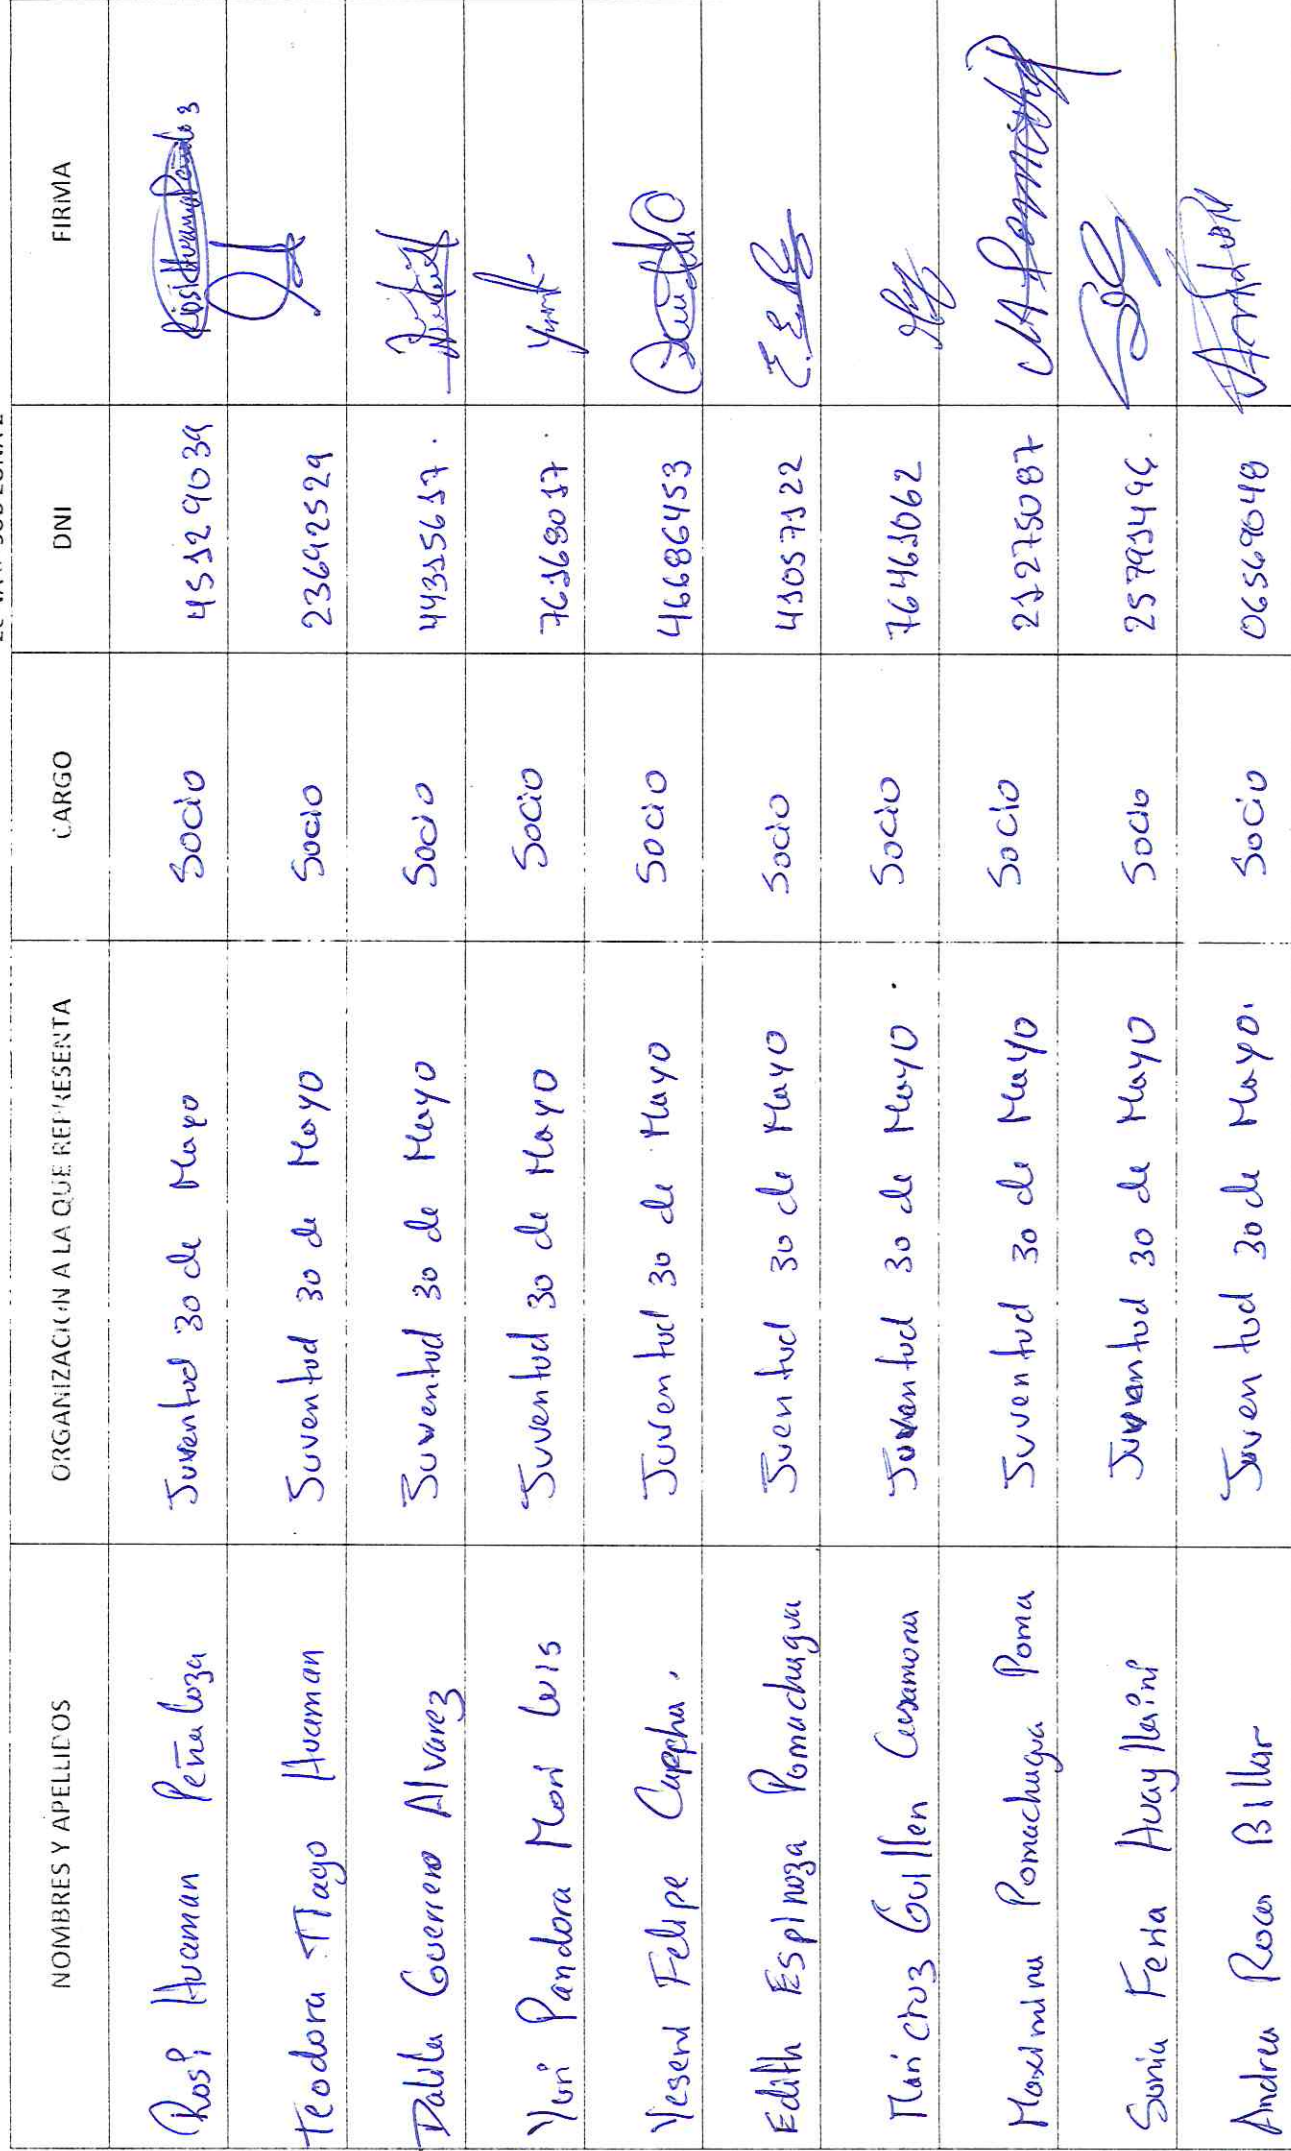 NOMBRES Y APELLIDOS ORGANIZACION A LA QUE REPRESENTA CARGO DNI FIRMA
Rosi Huaman Peñaloza Juventud 30 de Mayo Socio 45129039
Teodora Tiago Huaman Juventud 30 de Mayo Socio 23692529
Dalila Guerrero Alvarez Juventud 30 de Mayo Socio 44315617.
Yuri Pandora Mori Luis Juventud 30 de Mayo Socio 76168017.
Yeseni Felipe Ccppha. Juventud 30 de Mayo Socio 46686453
Edith Espinoza Pomachagua Juventud 30 de Mayo Socio 41057122 E.
Maricruz Guillen Casamora Juventud 30 de Mayo. Socio 76461062
Maximina Pomachagua Poma Juventud 30 de Mayo Socio 21275087
Sonia Feria Huayllasini Juventud 30 de Mayo Socio 25791494.
Andrea Roca Billar Juventud 30 de Mayo. Socio 06569048